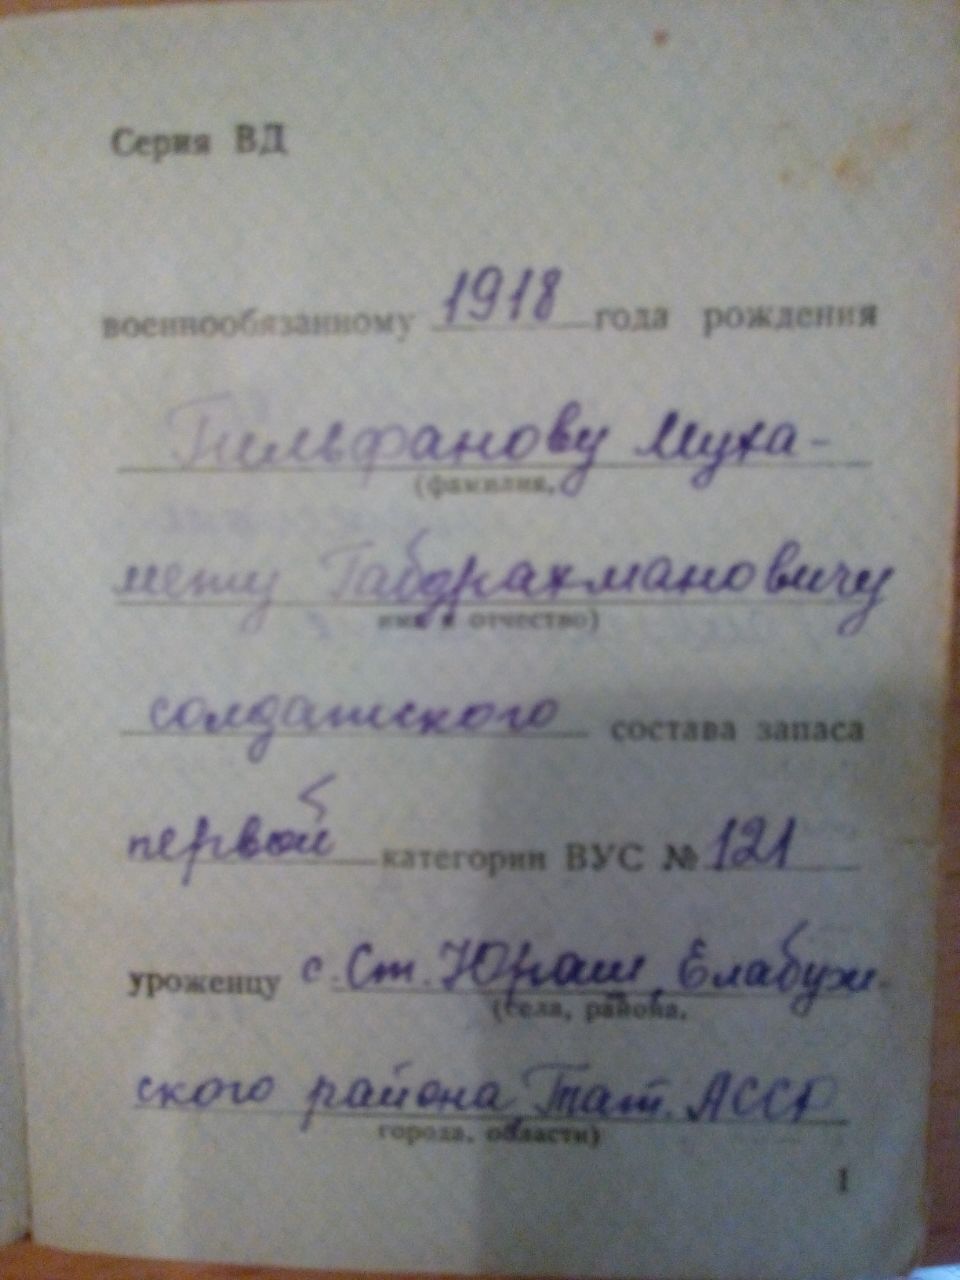 Серия ВД
военнообязанному 1918 года рождения
Гильфанову Муха-
(фамилия,
мету Габдрахмановичу
имя и отчество)
солдатского состава запаса
первой категории ВУС № 121
уроженцу с. Ст. Юраш, Елабуж-
(села, района,
ского района, Тат. АССР
города, области)
1